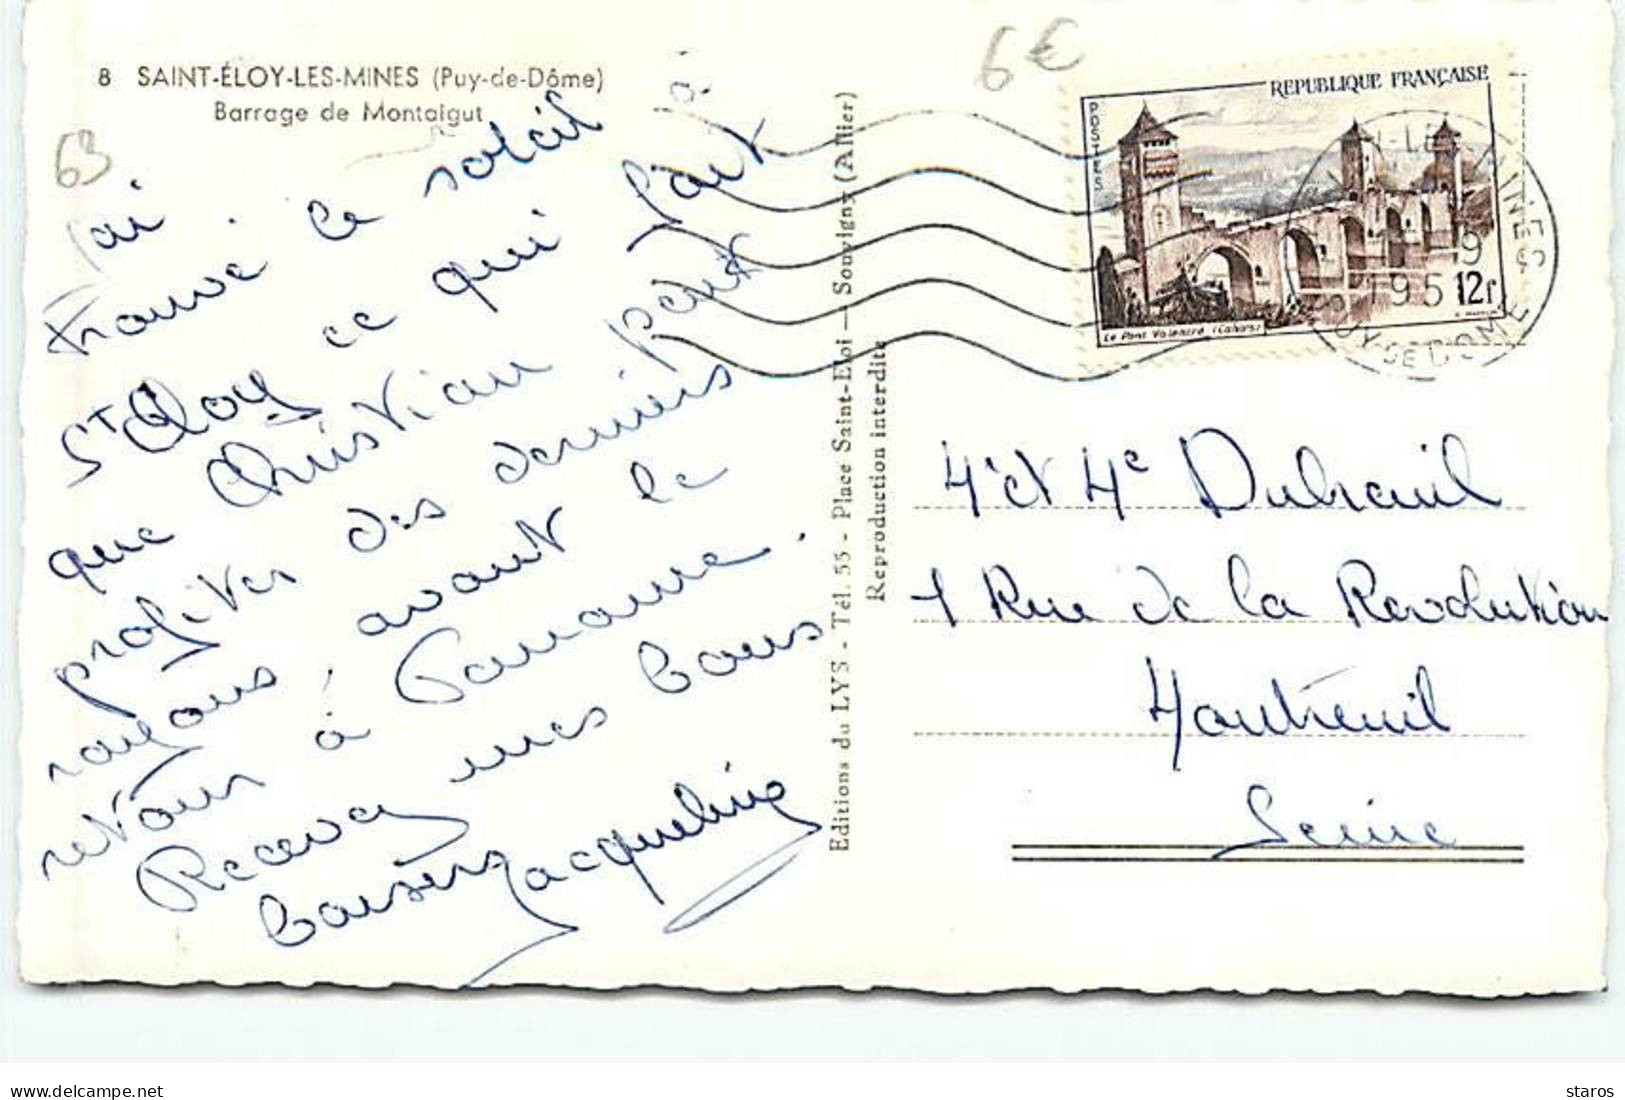 8 SAINT-ÉLOY-LES-MINES (Puy-de-Dôme)
Barrage de Montaigut
63
6€
J'ai
trouvé le soleil à
St Eloy ce qui fait
que Christian peut
profiter des derniers
rayons avant le
retour à Paname.
Recevez mes bons
baisers Jacqueline
Editions du LYS - Tél. 55 - Place Saint-Eloi — Souvigny (Allier)
Reproduction interdite
REPUBLIQUE FRANÇAISE
POSTES
12f
Le Pont Valentré (Cahors)
MINES
9
195
PUY-DE-DOME
M et Me Dubreuil
1 Rue de la Revolution
Montreuil
Seine
11 oct 2023
staros